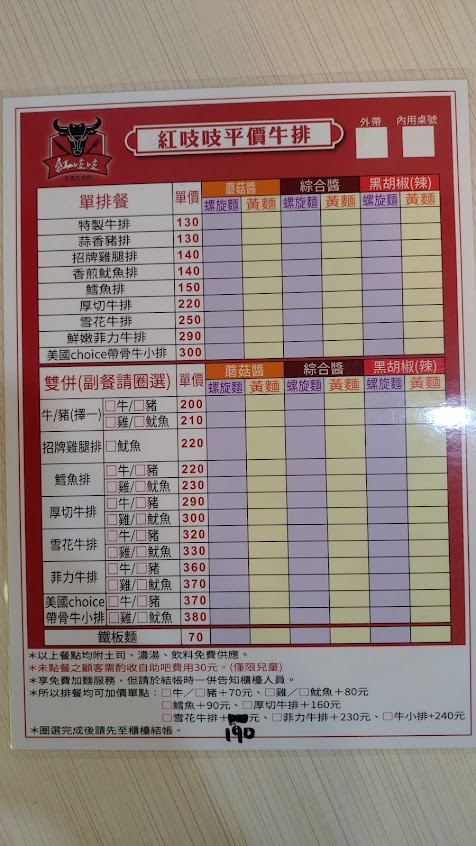 紅吱吱
紅吱吱平價牛排
外帶 內用桌號
單排餐 單價 蘑菇醬 綜合醬 黑胡椒(辣)
螺旋麵 黃麵 螺旋麵 黃麵 螺旋麵 黃麵
特製牛排 130
蒜香豬排 130
招牌雞腿排 140
香煎魷魚排 140
鱈魚排 150
厚切牛排 220
雪花牛排 250
鮮嫩菲力牛排 290
美國choice帶骨牛小排 300
雙併(副餐請圈選) 單價 蘑菇醬 綜合醬 黑胡椒(辣)
螺旋麵 黃麵 螺旋麵 黃麵 螺旋麵 黃麵
牛/豬(擇一) □牛/□豬 200
□雞/□魷魚 210
招牌雞腿排 □魷魚 220
鱈魚排 □牛/□豬 220
□雞/□魷魚 230
厚切牛排 □牛/□豬 290
□雞/□魷魚 300
雪花牛排 □牛/□豬 320
□雞/□魷魚 330
菲力牛排 □牛/□豬 360
□雞/□魷魚 370
美國choice帶骨牛小排 □牛/□豬 370
□雞/□魷魚 380
鐵板麵 70
*以上餐點均附土司、濃湯、飲料免費供應。
*未點餐之顧客需酌收自助吧費用30元。(僅限兒童)
*享免費加麵服務，但請於結帳時一併告知櫃檯人員。
*所以排餐均可加價單點：□牛／□豬＋70元、□雞／□魷魚＋80元
□鱈魚＋90元、□厚切牛排＋160元
□雪花牛排＋元、□菲力牛排＋230元、□牛小排+240元
190
*圈選完成後請先至櫃檯結帳。